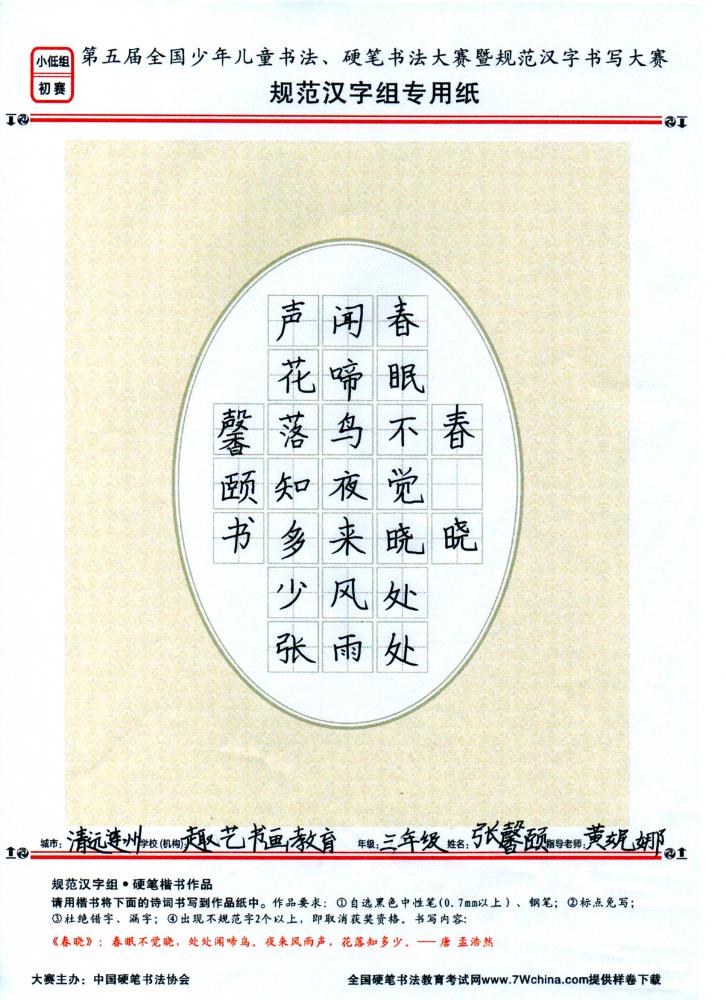 小低组
初赛
第五届全国少年儿童书法、硬笔书法大赛暨规范汉字书写大赛
规范汉字组专用纸
春晓
春眠不觉晓处处
闻啼鸟夜来风雨
声花落知多少张
馨颐书
城市：清远连州学校（机构）：趣艺书画教育 年级：三年级 姓名：张馨颐 指导老师：黄妮娜
规范汉字组•硬笔楷书作品
请用楷书将下面的诗词书写到作品纸中。作品要求：①自选黑色中性笔(0.7mm以上)、钢笔；②标点免写；
③杜绝错字、漏字；④出现不规范字2个以上，即取消获奖资格。书写内容：
《春晓》：春眠不觉晓，处处闻啼鸟。夜来风雨声，花落知多少。——唐 孟浩然
大赛主办：中国硬笔书法协会
全国硬笔书法教育考试网www.7Wchina.com提供样卷下载